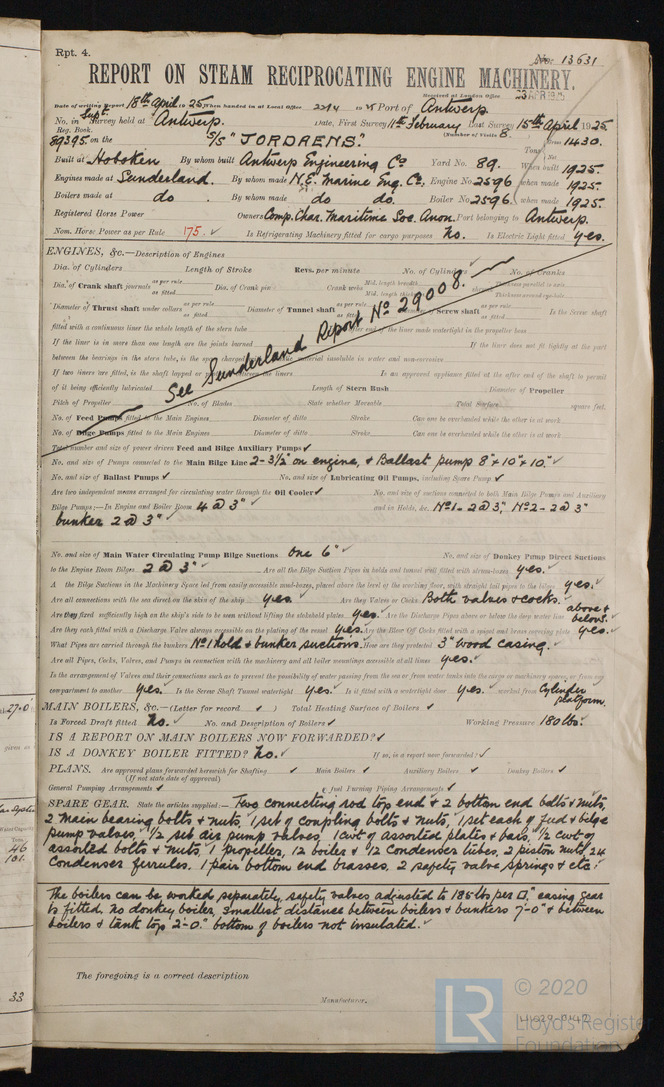 Rpt. 4.
No. 13631
REPORT ON STEAM RECIPROCATING ENGINE MACHINERY.
Received at London Office
Date of writing Report 18th April 1925 When handed in at Local Office 22/4 1925 Port of Antwerp
No. in Survey held at Antwerp. Date, First Survey 11th February Last Survey 15th April 1925
Reg. Book. Supt. (Number of Visits 8
89395 on the S/S "JORDAENS." Tons Gross 1430.
Net
Built at Hoboken By whom built Antwerp Engineering Co Yard No. 89. When built 1925.
Engines made at Sunderland. By whom made N.E. Marine Eng. Co. Engine No. 2596 when made 1925.
Boilers made at do. By whom made do do. Boiler No. 2596. when made 1925.
Registered Horse Power Owners Comp. Char. Maritime Soc. Anon. Port belonging to Antwerp.
Nom. Horse Power as per Rule 175. Is Refrigerating Machinery fitted for cargo purposes No. Is Electric Light fitted yes.
ENGINES, &c.—Description of Engines
Dia. of Cylinders Length of Stroke Revs. per minute No. of Cylinders No. of Cranks
Dia. of Crank shaft journals as per rule as fitted Dia. of Crank pin Crank webs Mid. length breadth Mid. length thick
Diameter of Thrust shaft under collars as per rule as fitted Diameter of Tunnel shaft as per rule as fitted Diameter of Screw shaft as per rule as fitted Is the Screw shaft
See Sunderland Report No 29008.
fitted with a continuous liner the whole length of the stern tube after end of the liner made watertight in the propeller boss
If the liner is in more than one length are the joints burned If the liner does not fit tightly at the part
between the bearings in the stern tube, is the space charged material insoluble in water and non-corrosive
If two liners are fitted, is the shaft lapped or the liners Is an approved appliance fitted at the after end of the shaft to permit
of it being efficiently lubricated Length of Stern Bush Diameter of Propeller
Pitch of Propeller No. of Blades State whether Moveable Total Surface square feet
No. of Feed Pumps fitted to the Main Engines Diameter of ditto Stroke Can one be overhauled while the other is at work
No. of Bilge Pumps fitted to the Main Engines Diameter of ditto Stroke Can one be overhauled while the other is at work
Total number and size of power driven Feed and Bilge Auxiliary Pumps
No. and size of Pumps connected to the Main Bilge Line 2 - 3½" on engine, + Ballast pump 8" + 10" + 10."
No. and size of Ballast Pumps No. and size of Lubricating Oil Pumps, including Spare Pump
Are two independent means arranged for circulating water through the Oil Cooler No. and size of suctions connected to both Main Bilge Pumps and Auxiliary
Bilge Pumps;—In Engine and Boiler Room 4 @ 3" and in Holds, &c. No1 - 2 @ 3", No2 - 2 @ 3"
bunker 2 @ 3"
No. and size of Main Water Circulating Pump Bilge Suctions One 6" No. and size of Donkey Pump Direct Suctions
to the Engine Room Bilges 2 @ 3" Are all the Bilge Suction Pipes in holds and tunnel well fitted with strum-boxes yes.
A the Bilge Suctions in the Machinery Space led from easily accessible mud-boxes, placed above the level of the working floor, with straight tail pipes to the bilges yes.
Are all connections with the sea direct on the skin of the ship yes. Are they Valves or Cocks Both valves & cocks.
Are they fixed sufficiently high on the ship's side to be seen without lifting the stokehold plates yes. Are the Discharge Pipes above or below the deep water line above & below.
Are they each fitted with a Discharge Valve always accessible on the plating of the vessel yes. Are the Blow Off Cocks fitted with a spigot and brass covering plate yes.
What Pipes are carried through the bunkers No1 hold & bunker suctions. How are they protected 3" wood casing.
Are all Pipes, Cocks, Valves, and Pumps in connection with the machinery and all boiler mountings accessible at all times yes.
Is the arrangement of Valves and their connections such as to prevent the possibility of water passing from the sea or from water tanks into the cargo or machinery spaces, or from any
compartment to another yes. Is the Screw Shaft Tunnel watertight yes. Is it fitted with a watertight door yes worked from Cylinder platform.
MAIN BOILERS, &c.—(Letter for record ) Total Heating Surface of Boilers
Is Forced Draft fitted No. No. and Description of Boilers Working Pressure 180 lbs.
IS A REPORT ON MAIN BOILERS NOW FORWARDED?
IS A DONKEY BOILER FITTED? No. If so, is a report now forwarded?
PLANS. Are approved plans forwarded herewith for Shafting Main Boilers Auxiliary Boilers Donkey Boilers
(If not state date of approval)
General Pumping Arrangements Fuel Burning Piping Arrangements
SPARE GEAR. State the articles supplied:— Two connecting rod top end & 2 bottom end bolts & nuts,
2 main bearing bolts & nuts, 1 set of coupling bolts & nuts, 1 set each of feed & bilge
pump valves, ½ set air pump valves, 1 cwt of assorted plates & bars, ½ cwt of
assorted bolts & nuts, 1 propeller, 12 boiler & 12 condenser tubes, 2 piston nuts, 24
condenser ferrules, 1 pair bottom end brasses, 2 safety valve springs & etc.
The boilers can be worked separately, safety valves adjusted to 185 lbs per □", easing gear
is fitted, no donkey boiler, smallest distance between boilers & bunkers 7'-0" & between
boilers & tank top 2'-0." bottom of boilers not insulated.
The foregoing is a correct description
Manufacturer.
27'-0"
46
101.
33
LR
© 2020
Lloyd's Register
Foundation